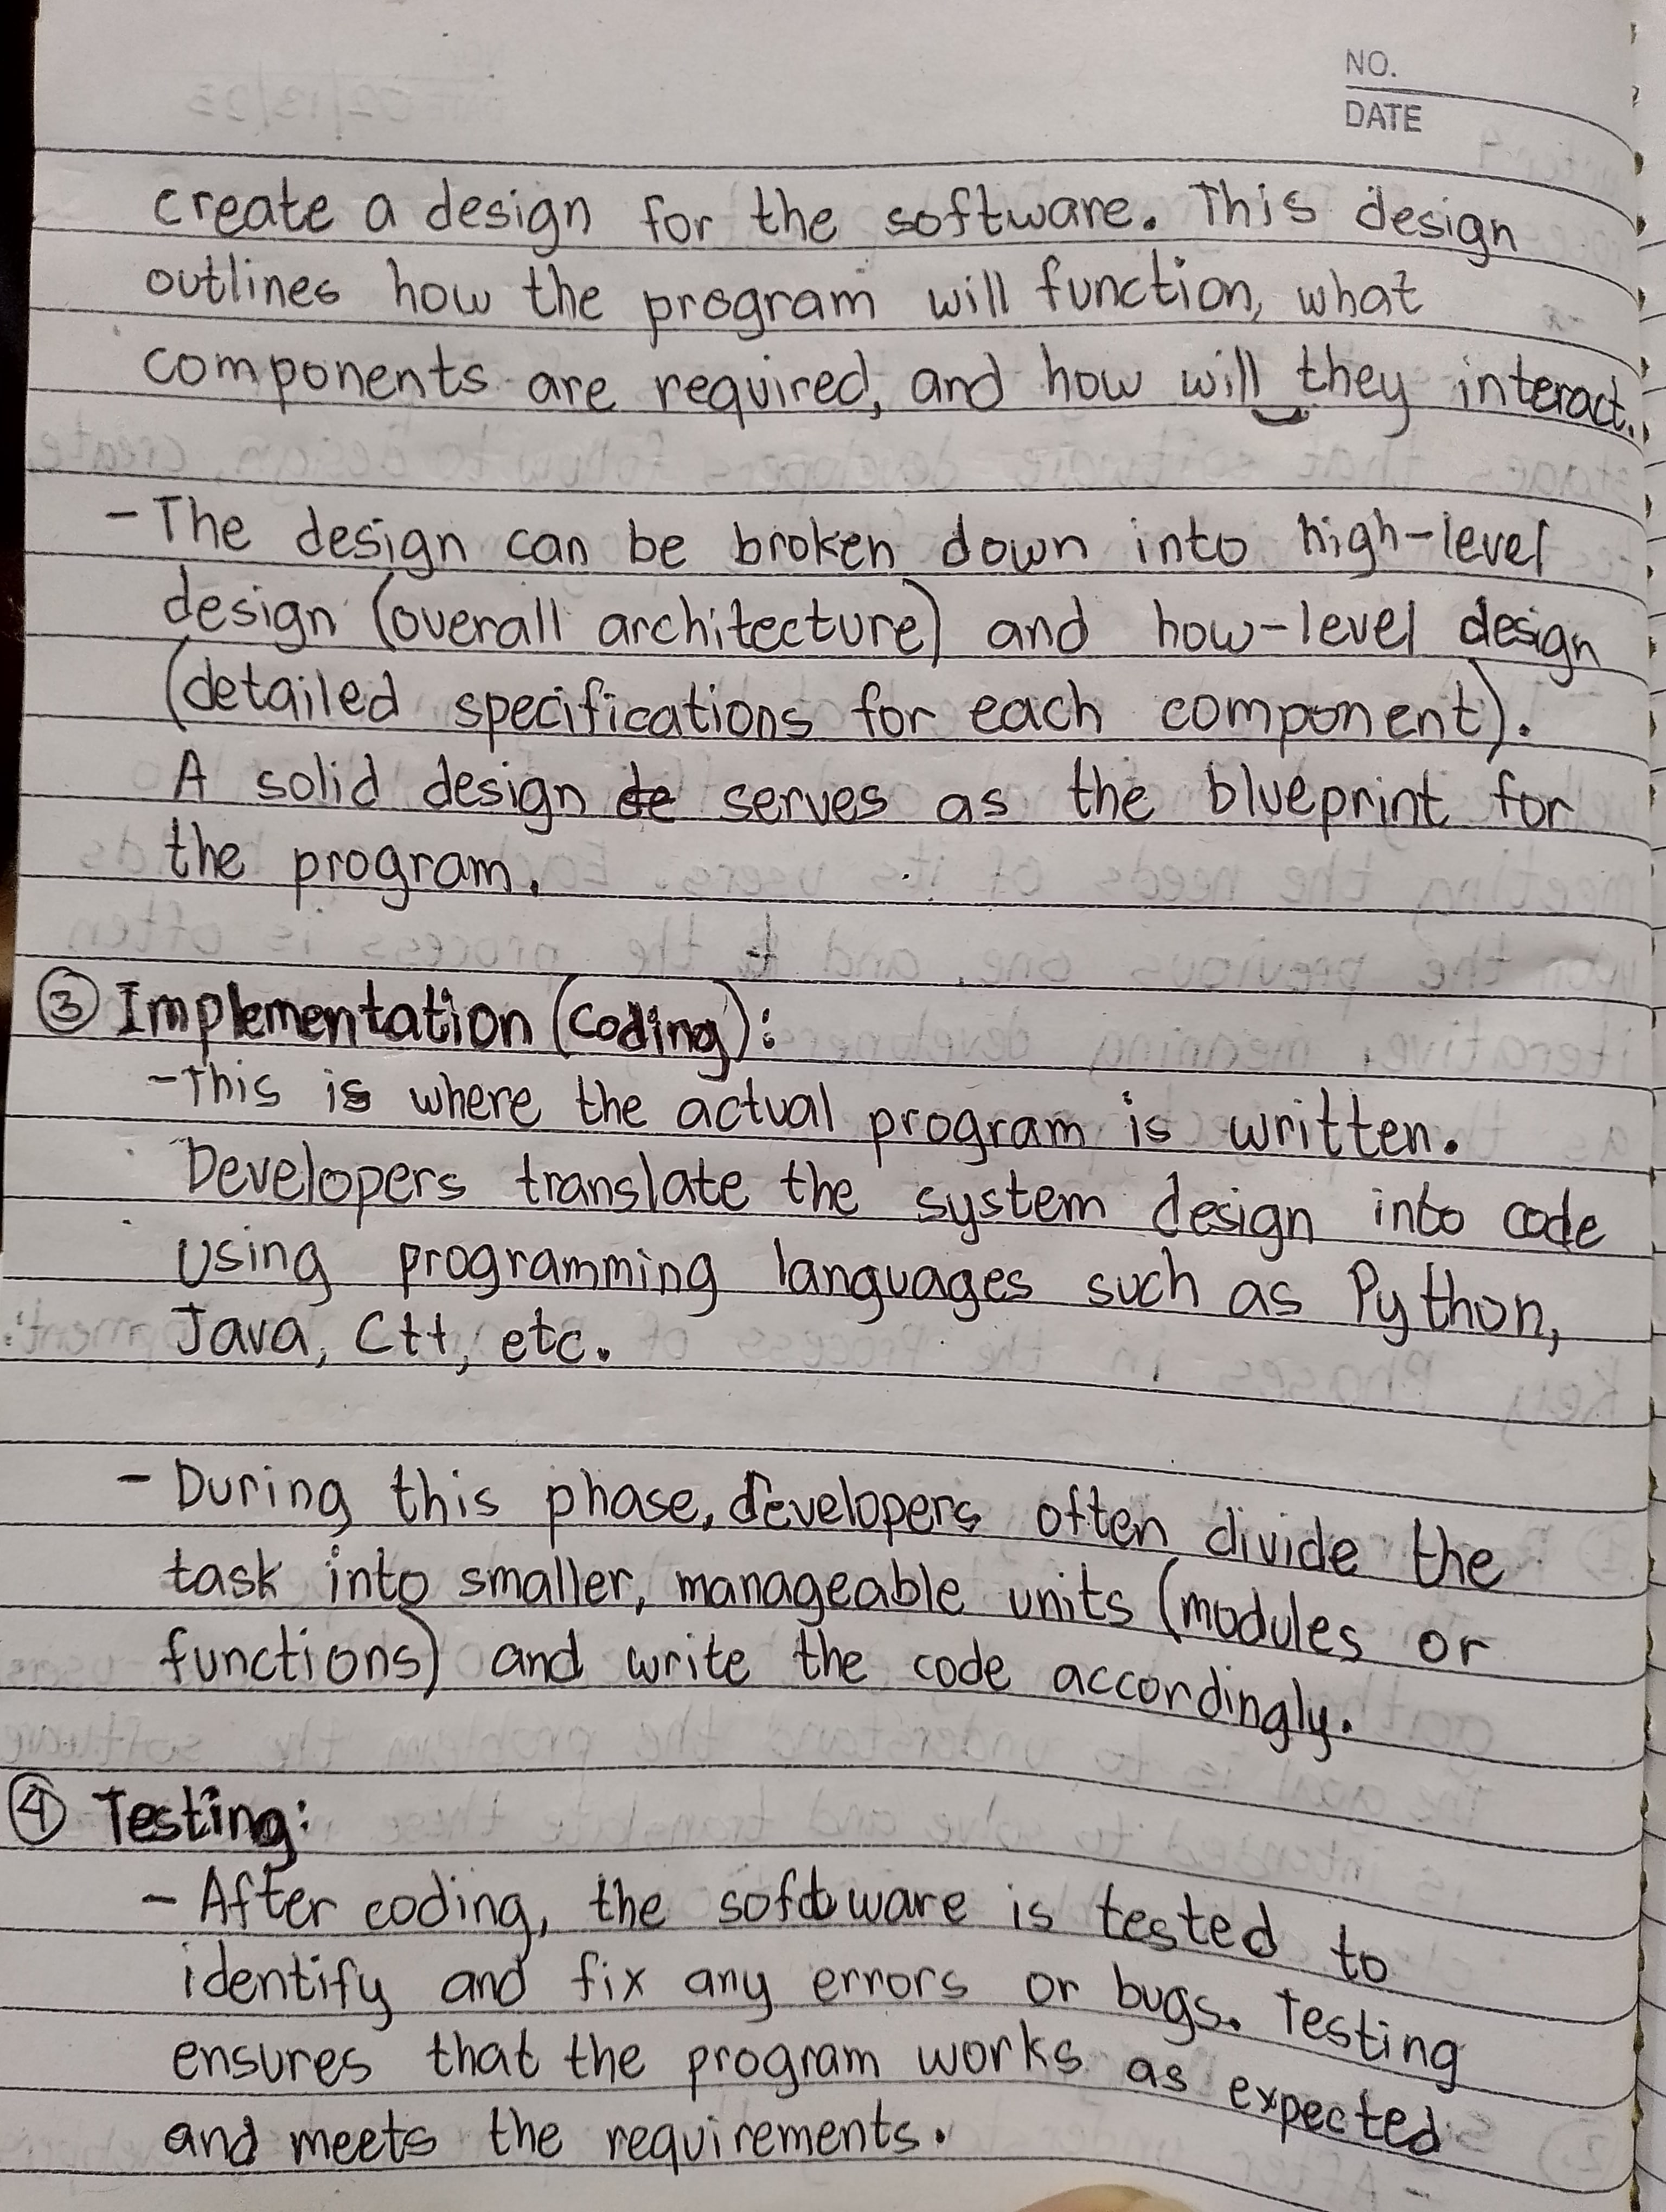 NO.
DATE
create a design for the software. This design
outlines how the program will function, what
components are required, and how will they interact.
- The design can be broken down into high-level
design (overall architecture) and how-level design
(detailed specifications for each component).
A solid design de serves as the blueprint for
the program.
③ Implementation (Coding):
- This is where the actual program is written.
Developers translate the system design into code
Using programming languages such as Python,
Java, C++, etc.
- During this phase, developers often divide the
task into smaller, manageable units (modules or
functions) and write the code accordingly.
④ Testing:
- After coding, the software is tested to
identify and fix any errors or bugs. Testing
ensures that the program works as expected
and meets the requirements.